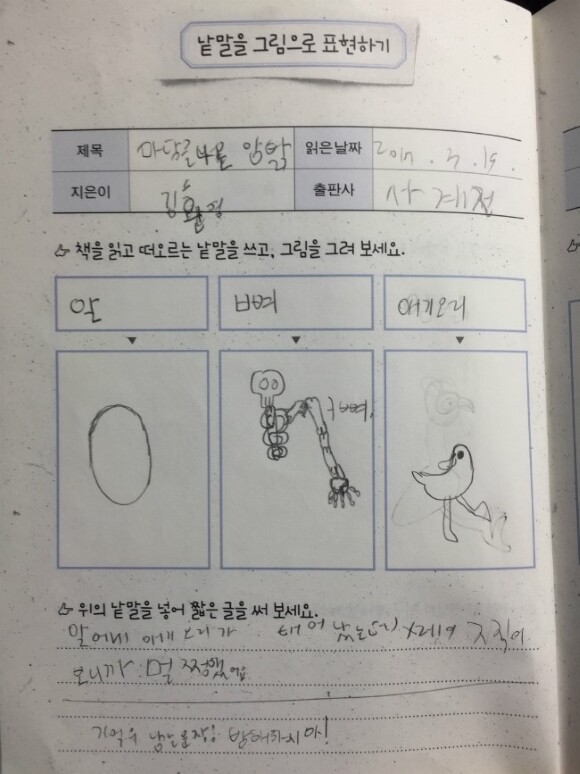 낱말을 그림으로 표현하기
제목 마당을 나온 암탉 읽은 날짜 2017. 3. 19.
지은이 김환영 출판사 사계절
책을 읽고 떠오르는 낱말을 쓰고, 그림을 그려 보세요.
알 뼈 애기오리
뼈
위의 낱말을 넣어 짧은 글을 써 보세요.
알에서 애기오리가 태어났는데
보니까 멀쩡했어요
기억에 남는 문장: 방해하지 마!